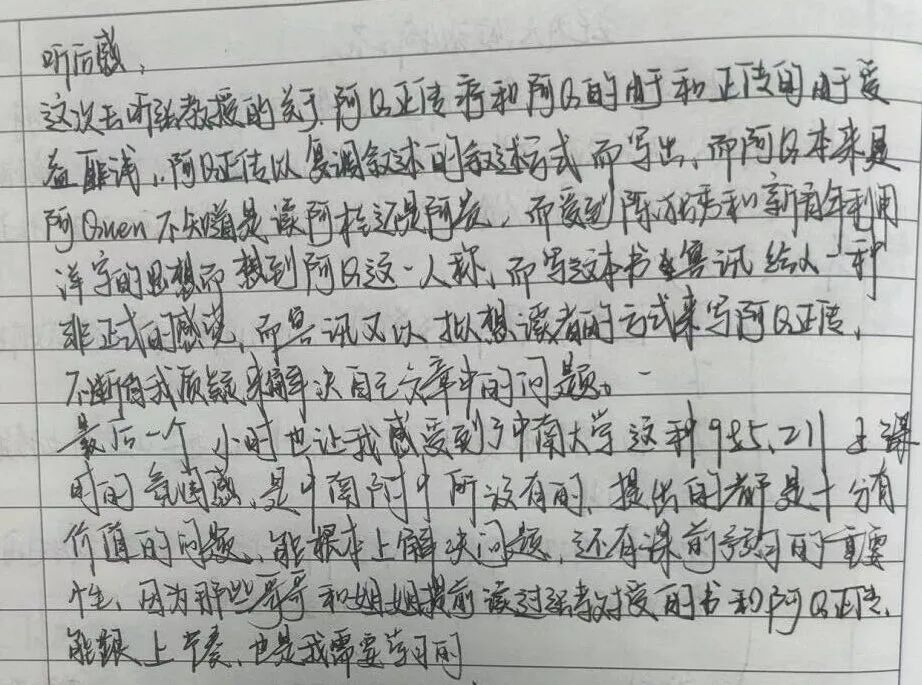 听后感,
这次去听张教授的关于阿Q正传序和阿Q的由于和正传的由于受
益匪浅,阿Q正传以复调叙述的叙述方式而写出,而阿Q本来是
阿Quen不知道是读阿桂还是阿贵,而受到陈独秀和新青年利用
洋字的思想而想到阿Q这一人称,而写这本书鲁讯给人一种
非正式的感觉,而鲁讯又以拟想读者的方式来写阿Q正传,
不断自我质疑来解决自己文章中的问题。
最后一个小时也让我感受到了中南大学这种985,211上课
时的氛围感,是中南附中所没有的,提出的都是十分有
价值的问题,能根本上解决问题,还有课前预习的重要
性,因为那些哥哥和姐姐提前读过张教授的书和阿Q正传,
能跟上节奏,也是我需要学习的